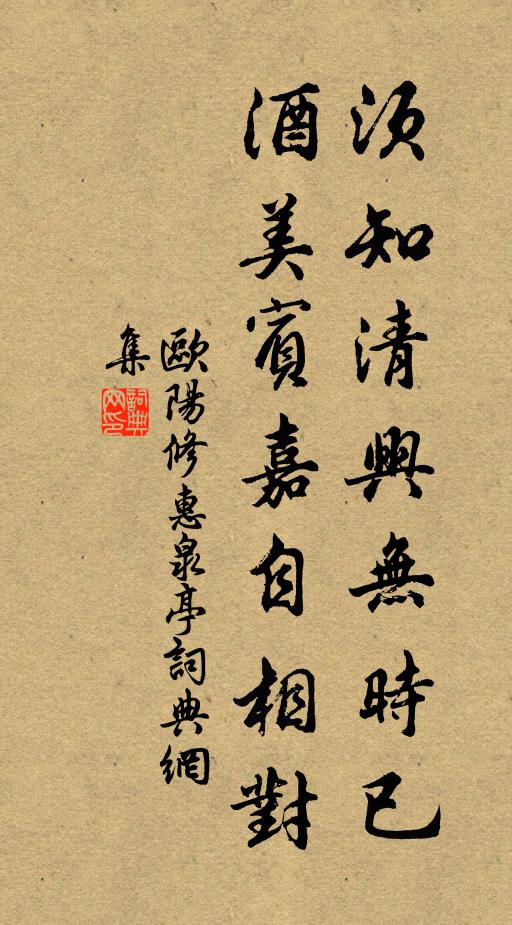 須知清興無時已
酒美賓嘉自相對
歐陽修惠泉亭詞典網
集
詞典
网印